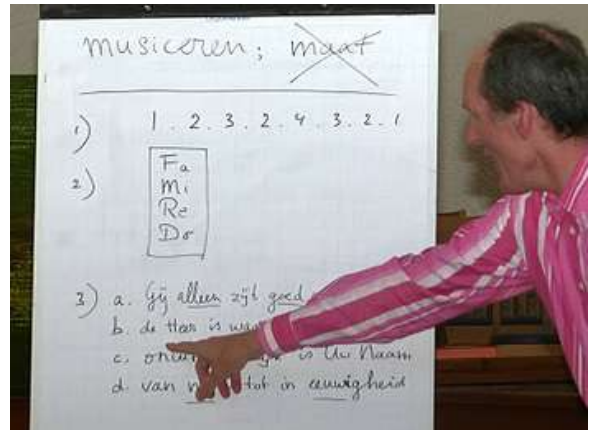 musiceren; maat
1) 1 . 2 . 3 . 2 . 4 . 3 . 2 . 1
2) Fa
Mi
Re
Do
3) a. Gij alleen zijt goed
b. de Heer is
c. is Uw Naam
d. van tot in eeuwigheid